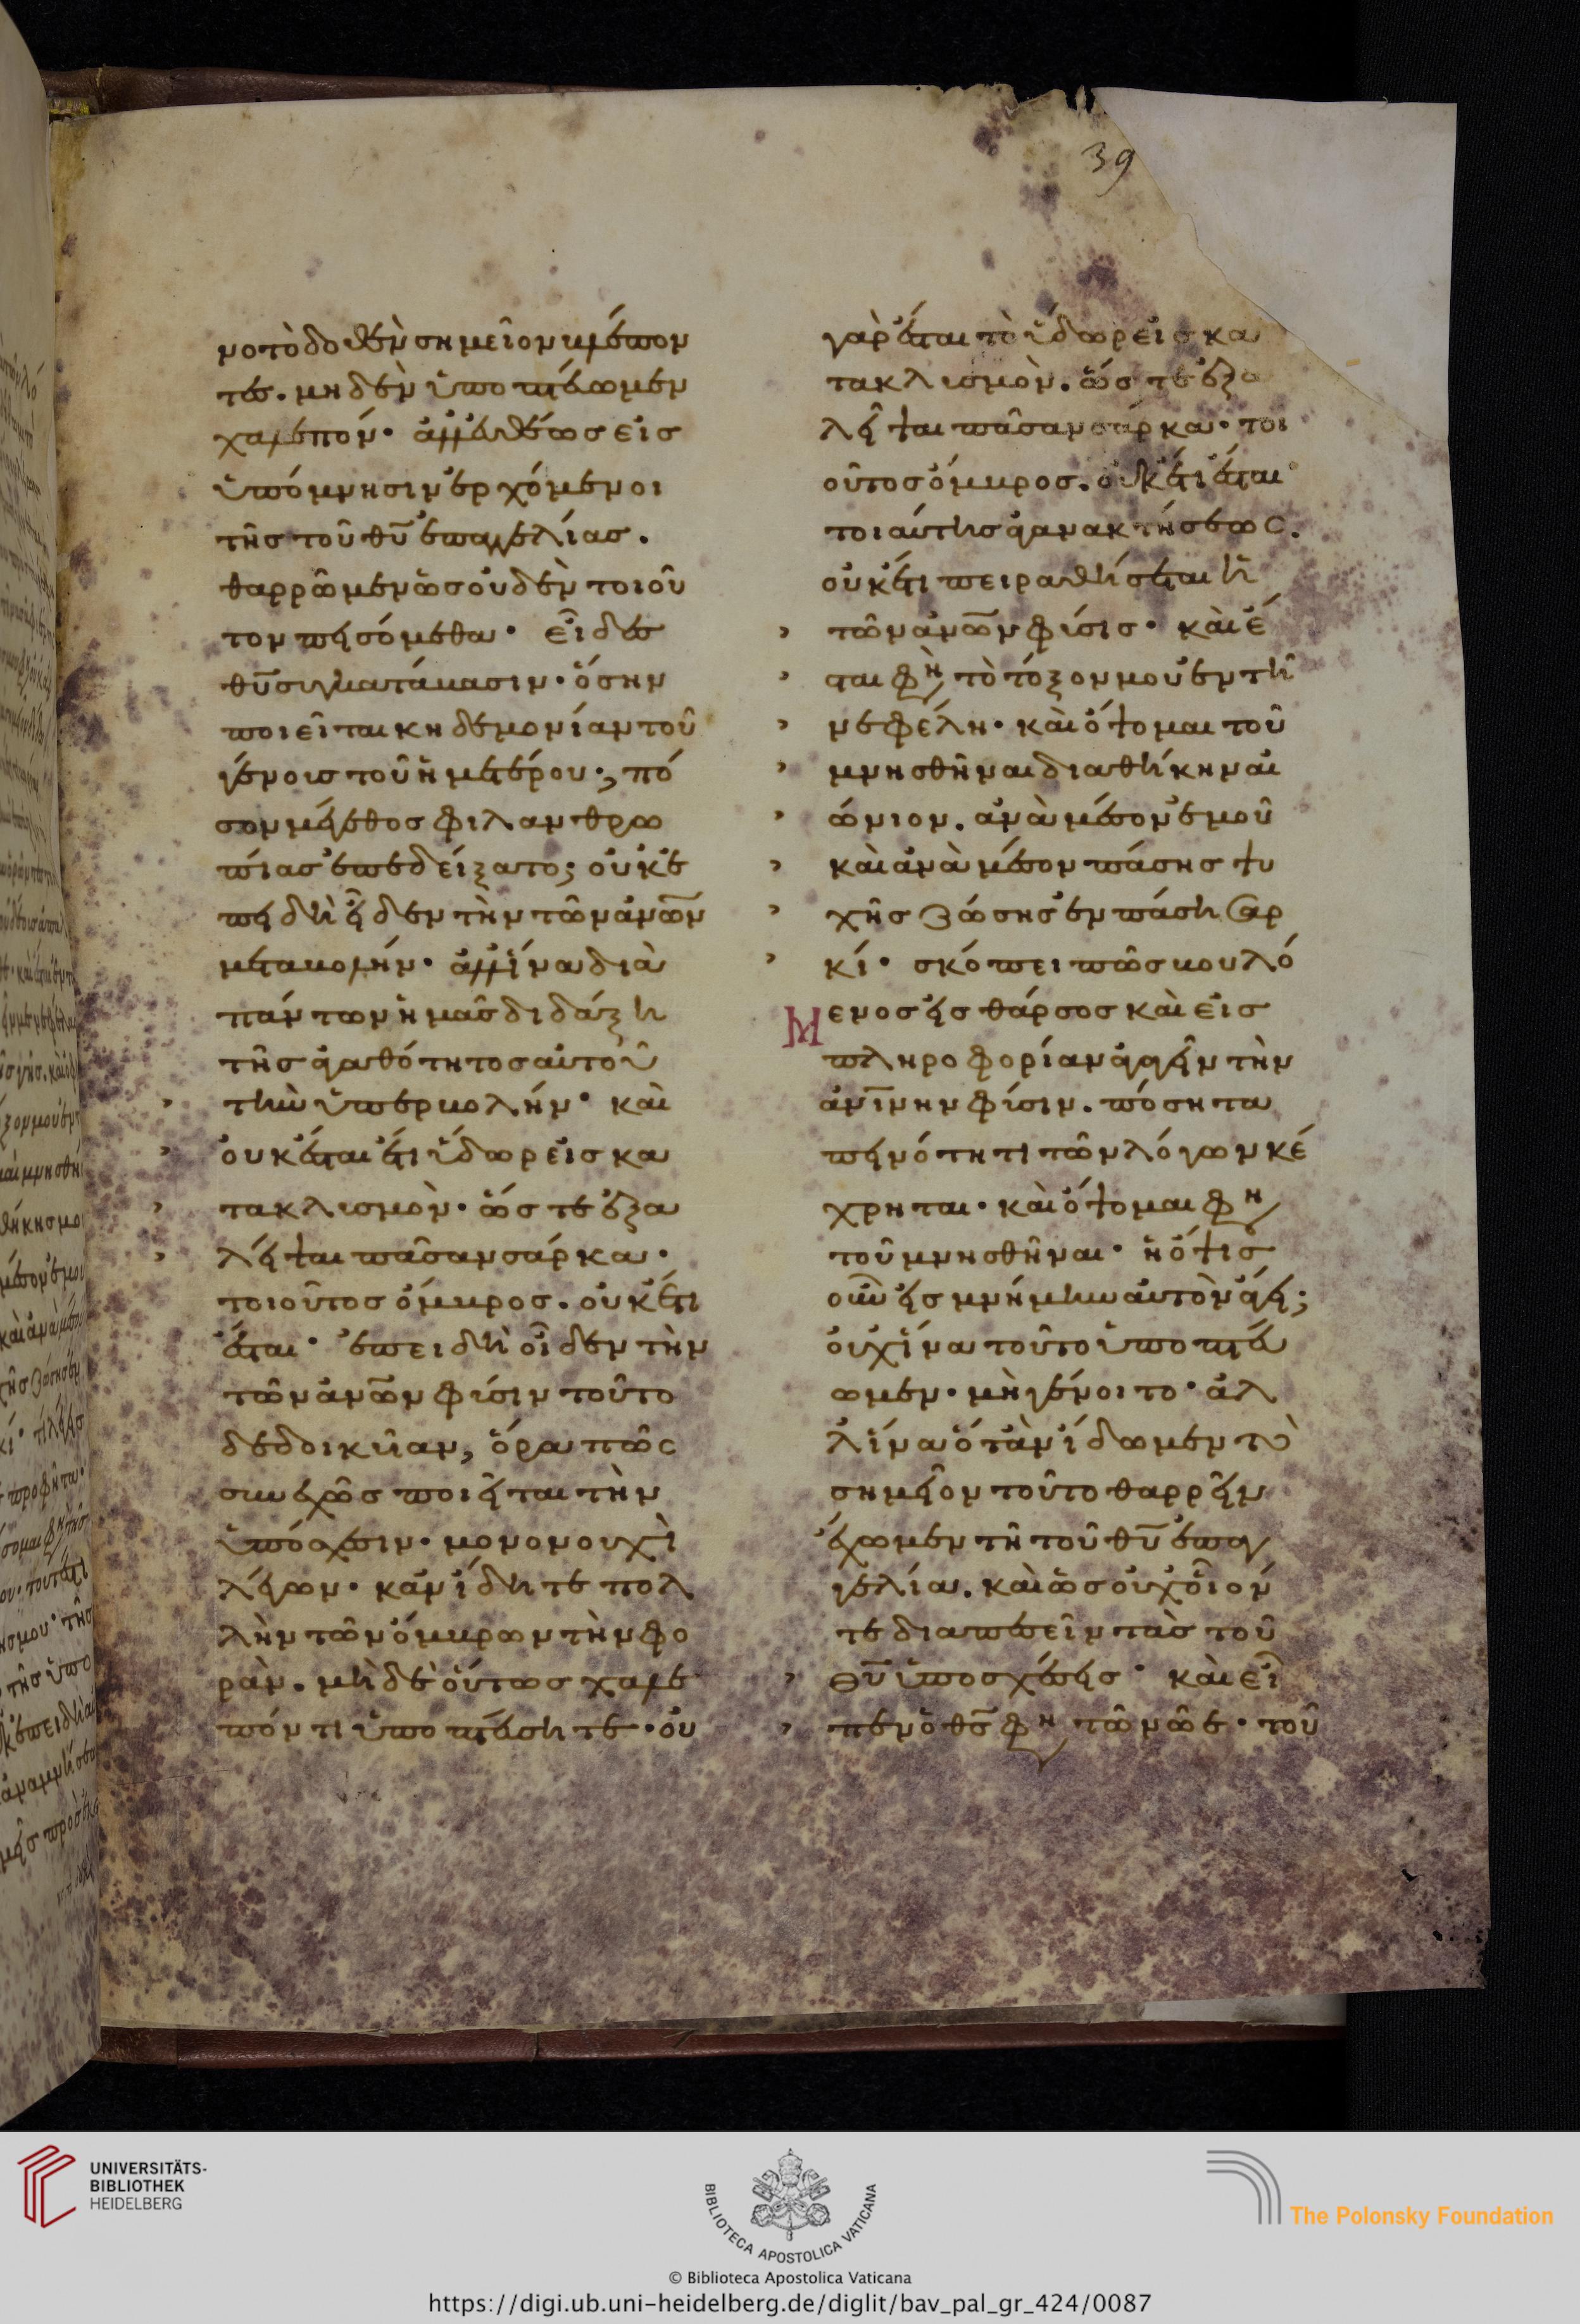 39
νο τὸ δοθὲν σημεῖον βλέπον
τες. μηδὲν ὑποπτεύωμεν
χαλεπόν· ἀλλ' εὐθέως εἰς
ὑπόμνησιν ἐρχόμενοι
τῆς τοῦ θυ ἐπαγγελίας.
θαρρῶμεν ὡς οὐδὲν τοιοῦ
τον πεισόμεθα· εἶδες
θυ συγκατάβασιν· ὅσην
ποιεῖται κηδεμονίαν τοῦ
γένους τοῦ ἡμετέρου·, πό
σον μέγεθος φιλανθρω
πίας ἐπεδείξατο; οὐκ ἐ
πειδὴ εἶδεν τὴν τῶν ἀνων
μεταβολήν· ἀλλ' ἵνα διὰ
πάντων ἡμᾶς διδάξη
τῆς ἀγαθότητος αὐτοῦ
τὴν ὑπερβολήν· καὶ
οὐκ ἔσται ἔτι ὕδωρ εἰς κα
τακλυσμὸν. ὥστε ἐξα
λεῖψαι πᾶσαν σάρκα·
τοιοῦτος ὄμβρος. οὐκέτι
ἔσται· ἐπειδὴ οἶδεν τὴν
τῶν ἀνων φύσιν τοῦτο
δεδοικυῖαν, ὅρα πῶς
συνεχῶς ποιεῖται τὴν
ὑπόσχεσιν· μονονουχὶ
λέγων· κἂν ἴδητε πολ
λὴν τῶν ὄμβρων τὴν φο
ράν. μὴ δὲ οὕτως χαλε
πόν τι ὑποπτεύσητε· οὐ
γὰρ ἔσται τὸ ὕδωρ εἰς κα
τακλυσμὸν. ὥστε ἐξα
λεῖψαι πᾶσαν σάρκα· τοι
οῦτος ὄμβρος. οὐκέτι ἔσται
τοιαύτης ἀγανακτήσεως.
οὐκέτι πειραθήσεται ἡ
τῶν ἀνων φύσις· καὶ ἔ
σται φη τὸ τόξον μου ἐν τῆ
νεφέλη· καὶ ὄψομαι τοῦ
μνησθῆναι διαθήκην αἰ
ώνιον. ἀνὰ μέσον ἐμοῦ
καὶ ἀνὰ μέσον πάσης ψυ
χῆς ζώσης ἐν πάση σαρ
κί· σκόπει πῶς βουλό
μενος εἰς θάρσος καὶ εἰς
πληροφορίαν ἀγαγεῖν τὴν
ἀνινην φύσιν. πόση τα
πεινότητι τῶν λόγων κέ
χρηται· καὶ ὄψομαι φη
τοῦ μνησθῆναι· ἡ ὄψις
οὖν εἰς μνήμην αὐτὸν ἄγει;
οὐχ ἵνα τοῦτο ὑποπτεύ
ωμεν· μὴ γένοιτο· ἀλ
λ' ἵνα ὅτ' ἂν ἴδωμεν τὸ
σημεῖον τοῦτο θαρρεῖν
ἔχωμεν τῆ τοῦ θυ ἐπαγ
γελία. καὶ ὡς οὐχ οἷόν
τε διαπεσεῖν τὰς τοῦ
θυ ὑποσχέσεις· καὶ εἶ
πεν ὁ θς φη τῶ νῶε· τοῦ
UNIVERSITÄTS-
BIBLIOTHEK
HEIDELBERG
BIBLIOTECA APOSTOLICA VATICANA
The Polonsky Foundation
© Biblioteca Apostolica Vaticana
https://digi.ub.uni-heidelberg.de/diglit/bav_pal_gr_424/0087